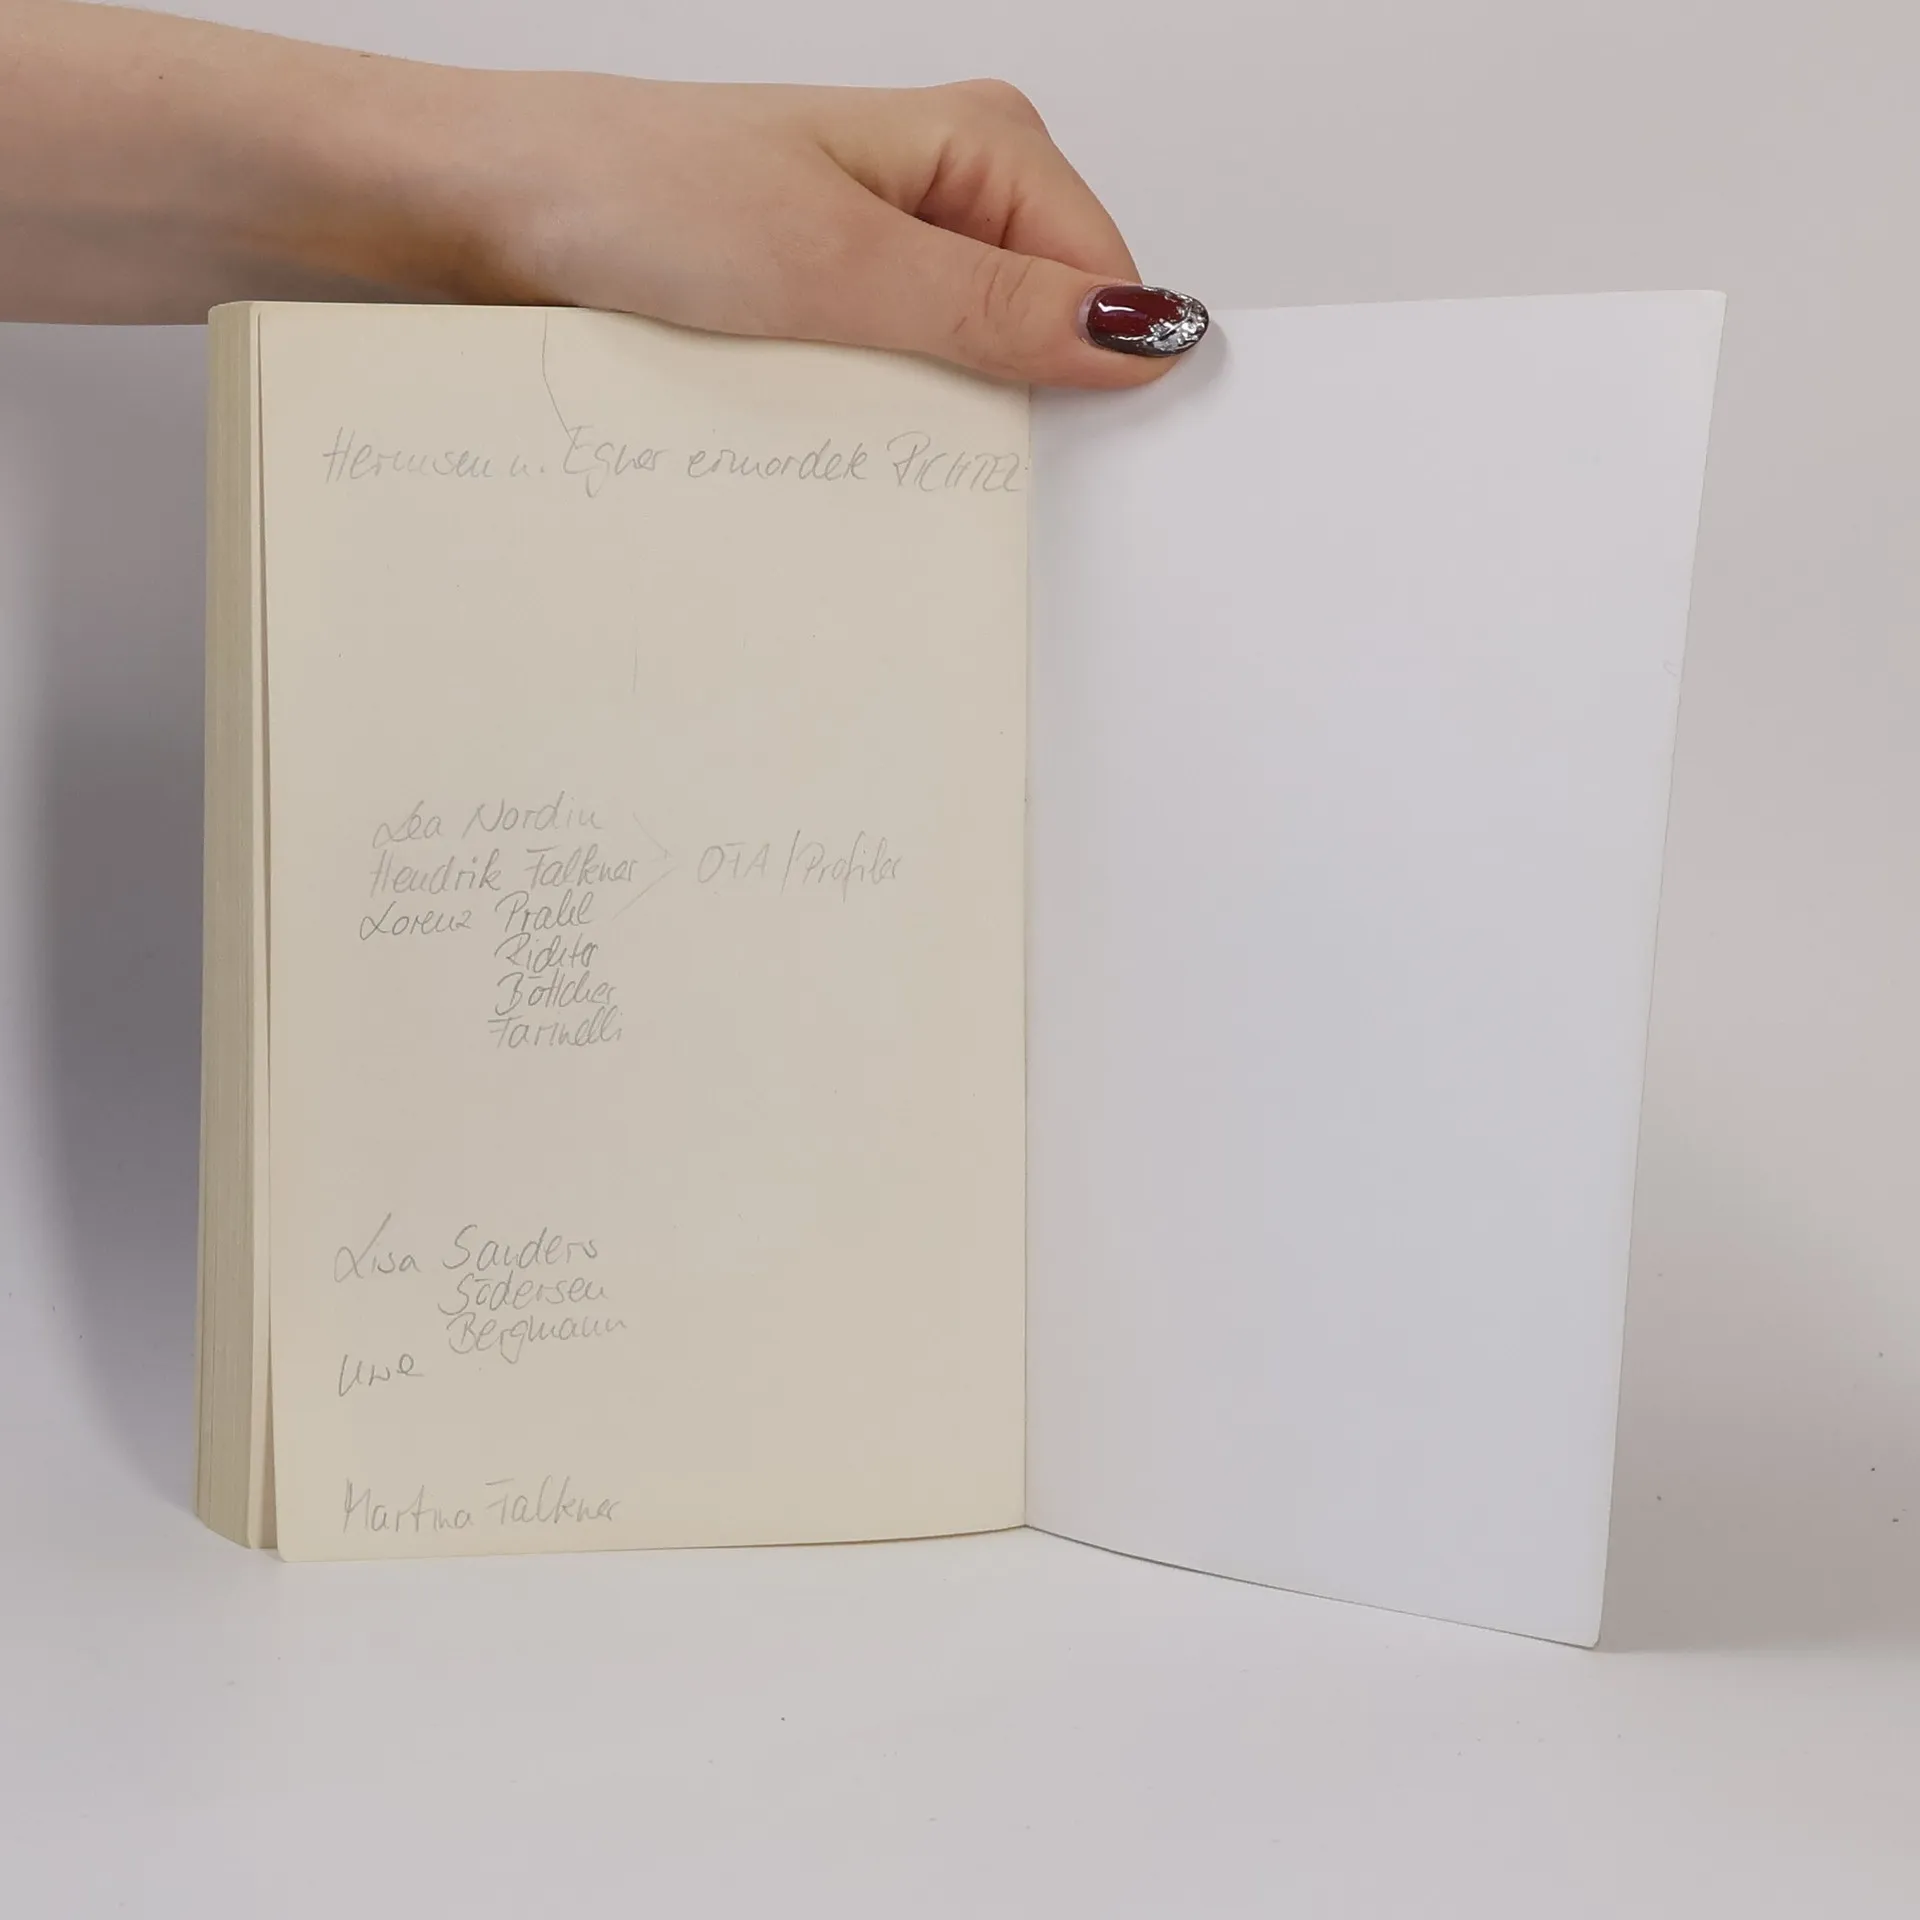 Hermsen u. Egner ermordete RICHTER
Lea Nordin
Hendrik Falkner OFA / Profiler
Lorenz Prahl
Richter
Böttcher
Farinelli
Lisa Sanders
Södersen
Bergmann
Uwe
Martina Falkner